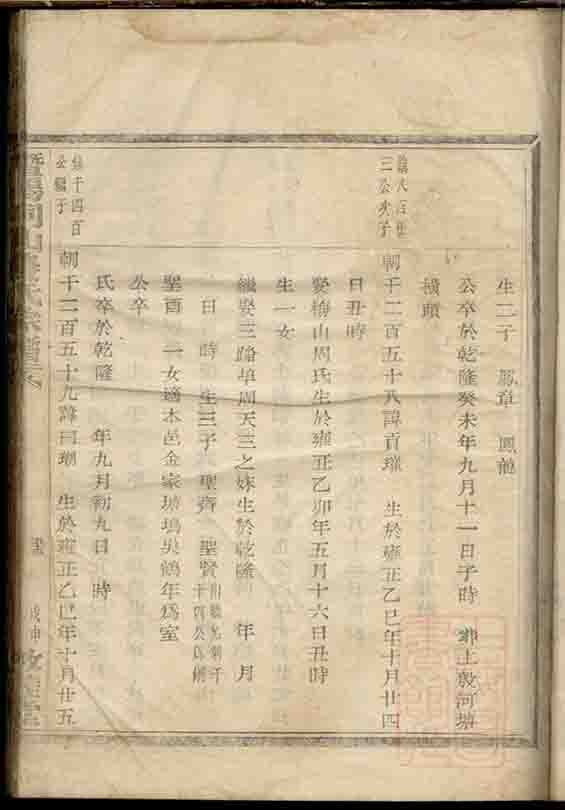 生二子 鳳章 鳳龍
公卒於乾隆癸未年九月十一日子時 土殷河塘
橫頭
三公次子
朝千二百五十八諱貢璀 生於雍正乙巳年十月廿四
日丑時
娶梅山周氏生於雍正乙卯年五月十六日丑時
生一女
繼娶三踏埠周天三之妹生於乾隆 年 月
日 時 生三子 聖齊 聖賢
聖酉 一女適本邑金家塢吳鶴年為室
公卒
氏卒於乾隆 年九月初九日 時
千四百
朝千二百五十九諱曰 生於雍正乙巳年十月廿五
暨陽同山 氏宗譜
戊申